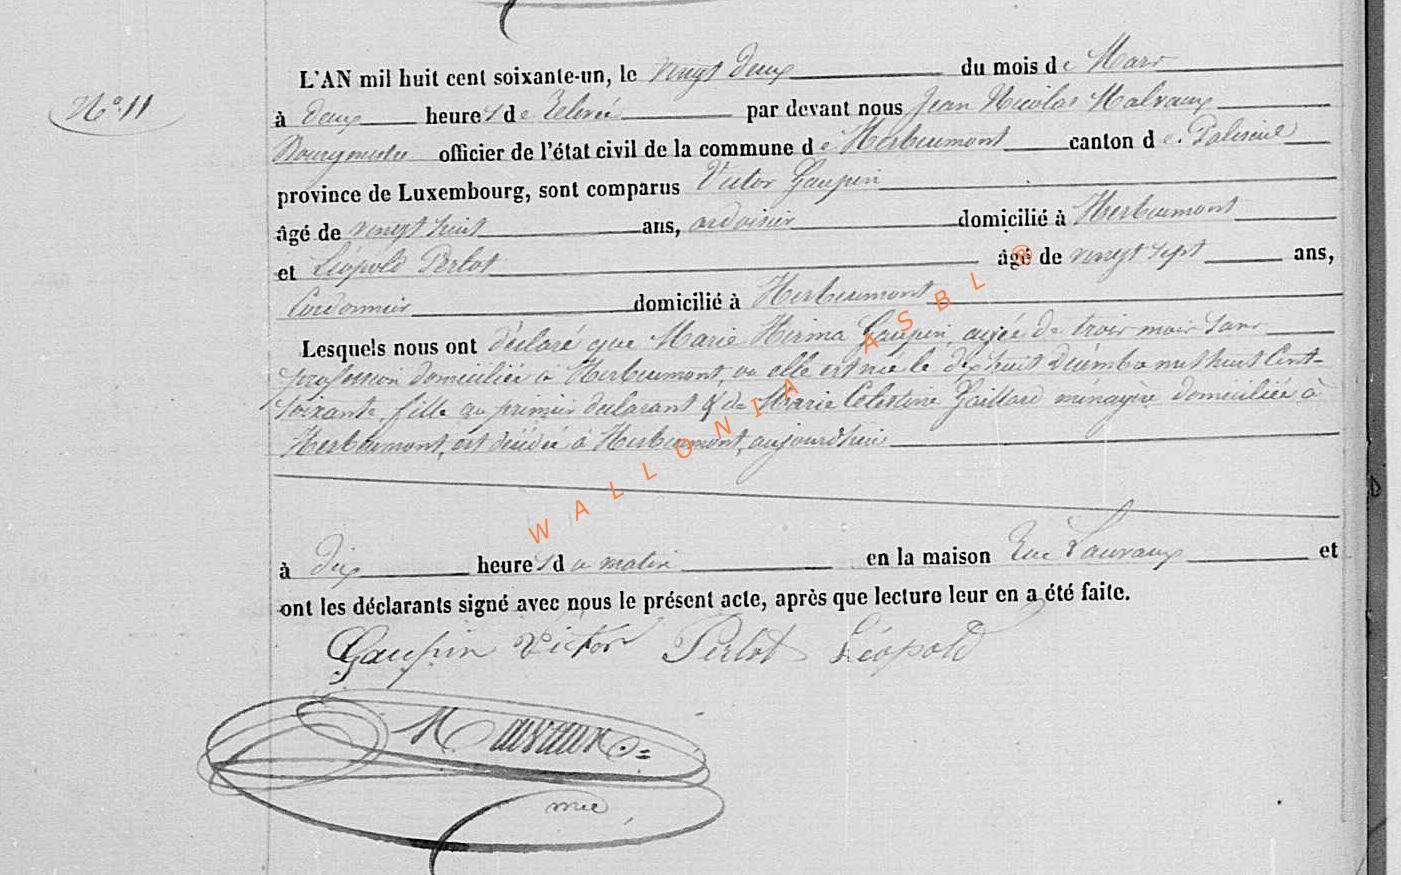 L'AN mil huit cent soixante-un, le vingt deux du mois de Mars
N° 11
à deux heures de relevée par devant nous Jean Nicolas Malvaux
Bourgmestre officier de l'état civil de la commune de Herbeumont canton de Paliseul
province de Luxembourg, sont comparus Victor Gaupin
âgé de vingt huit ans, ardoisier domicilié à Herbeumont
et Léopold Perlot âgé de vingt sept ans,
Cordonnier domicilié à Herbeumont
Lesquels nous ont déclaré que Marie Hirma Gaupin, agée de trois mois sans
profession domiciliée à Herbeumont, où elle est née le dix huit décembre mil huit Cent
soixante, fille du premier déclarant & de Marie Célestine Gaillard ménagère domiciliée à
Herbeumont, est décédée à Herbeumont, aujourd'hui
à dix heures du matin en la maison Rue Lauvaux et
ont les déclarants signé avec nous le présent acte, après que lecture leur en a été faite.
Gaupin Victor Perlot Léopold
Malvaux
WALLONIA ASBL ®